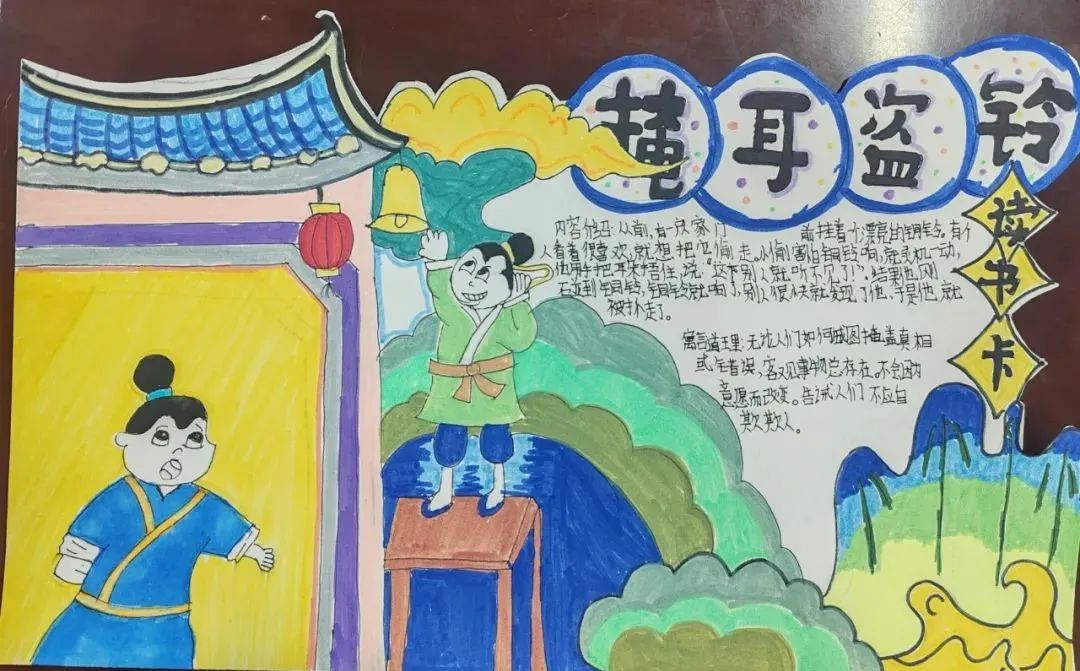 掩耳盗铃
读书卡
内容介绍:从前,有一户人家门前挂着个漂亮的铜铃。有个
人看着很喜欢,就想把它偷走。小偷害怕铜铃响,就灵机一动,
他用手把耳朵捂住,说:“这下别人就听不见了!”结果他刚
石碰到铜铃,铜铃就响了,别人很快就发现了他,于是他就
被扑走了。
寓言道理:无论人们如何试图掩盖真相
或错误,客观事物总存在,不会因为
意愿而改变。告诫人们不应自
欺欺人。